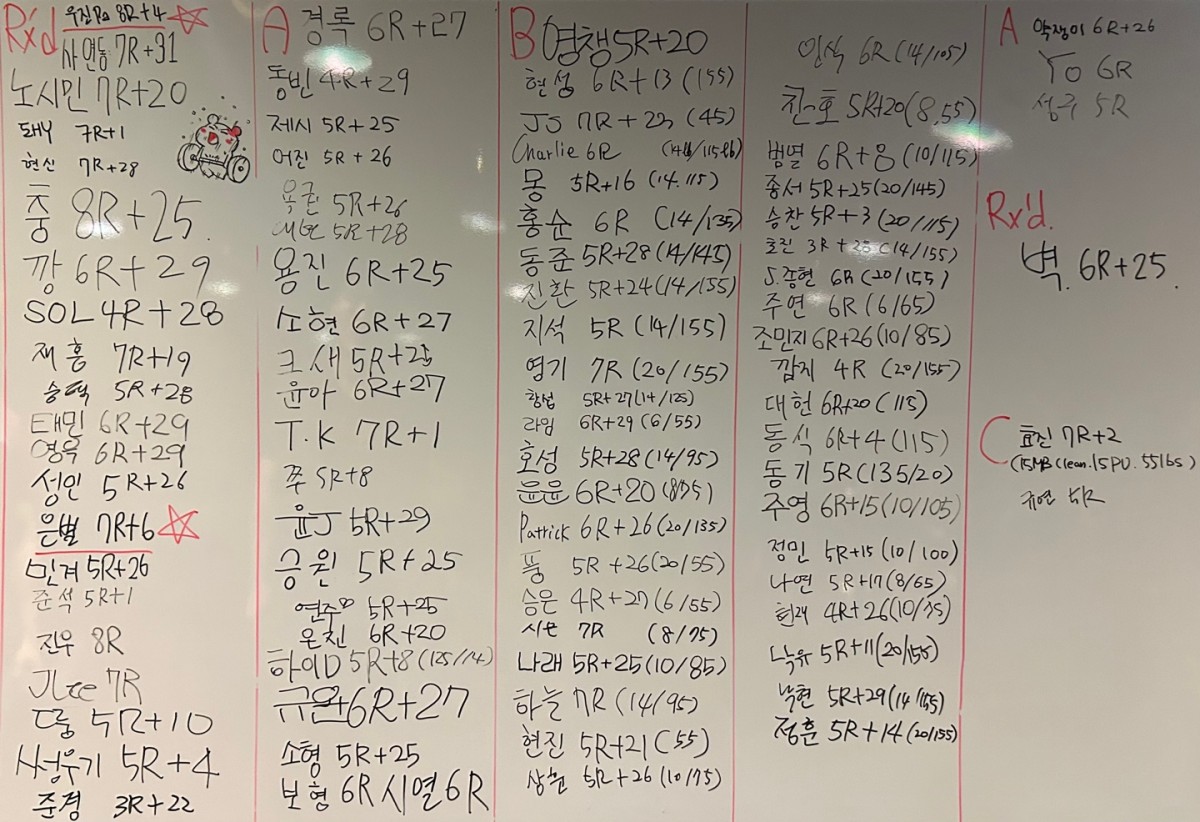 Rx'd
우진Pa 8R+4
사연동 7R+31
노시민 7R+20
돼니 7R+1
현신 7R+28
충 8R+25
깡 6R+29
SOL 4R+28
재홍 7R+19
승택 5R+28
태민 6R+29
영욱 6R+29
성민 5R+26
은별 7R+6
민겨 5R+26
준석 5R+1
진우 8R
JLee 7R
5R+10
서성우기 5R+4
준경 3R+22
A
경록 6R+27
동빈 4R+29
제시 5R+25
어진 5R+26
5R+26
5R+28
용진 6R+25
소현 6R+27
크새 5R+25
윤아 6R+27
T.K 7R+1
쭈 5R+8
윤J 5R+29
승원 5R+25
연주 5R+25
은진 6R+20
하이D 5R+8 (125/14)
규원 6R+27
소형 5R+25
보형 6R 시열 6R
B
영챙 5R+20
현성 6R+13 (155)
JS 7R+23 (45)
Charlie 6R (14lb/115lb)
몽 5R+16 (14.115)
홍순 6R (14/135)
동준 5R+28 (14/145)
진환 5R+24 (14/155)
지석 5R (14/155)
영기 7R (20/155)
항섭 5R+27 (14/125)
라임 6R+29 (6/55)
호성 5R+28 (14/95)
윤윤 6R+20 (8/75)
Patrick 6R+26 (20/135)
풍 5R+26 (20/55)
승은 4R+27 (6/55)
시은 7R (8/75)
나래 5R+25 (10/85)
하늘 7R (14/95)
현진 5R+21 (55)
상원 5R+26 (10/75)
인식 6R (14/105)
진호 5R+20 (8.55)
범열 6R+8 (10/115)
종서 5R+25 (20/145)
승찬 5R+3 (20/115)
호진 3R+25 (14/155)
J.종현 6R (20/155)
주연 6R (6/65)
조민지 6R+26 (10/85)
깜지 4R (20/155)
대헌 6R+20 (115)
동식 6R+4 (115)
동기 5R (135/20)
주영 6R+15 (10/105)
정민 5R+15 (10/100)
나연 5R+17 (8/65)
현래 4R+26 (10/75)
낙유 5R+11 (20/155)
낙현 5R+29 (14/155)
정훈 5R+14 (20/155)
A
약쟁이 6R+26
YO 6R
성규 5R
Rx'd.
벽. 6R+25.
C
효진 7R+2
(15MB Clean. 15PU. 55lbs)
규연 5R